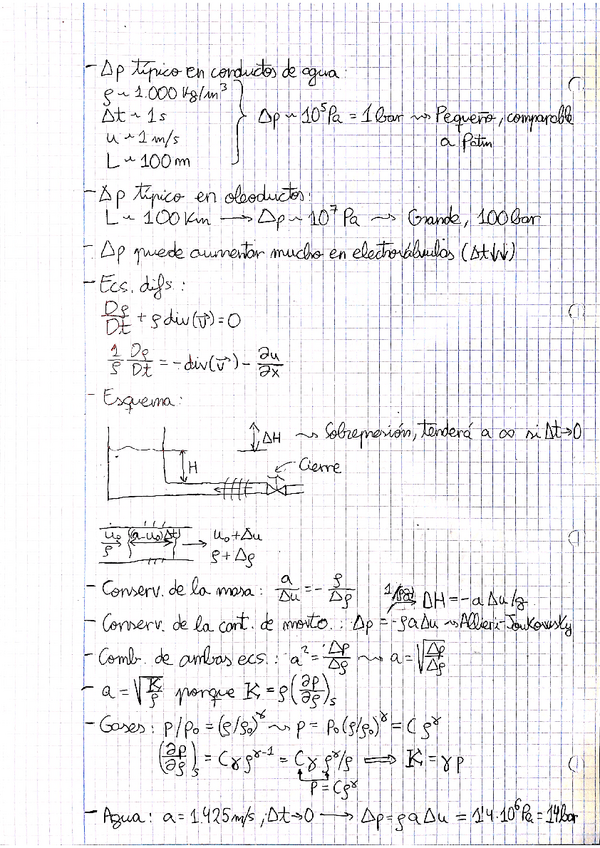 - Δp típico en conductos de agua
ρ ~ 1.000 kg/m³
Δt ~ 1s
u ~ 1 m/s
L ~ 100 m
Δp ~ 10⁵ Pa = 1 bar ⇝ Pequeño, comparable
a Patm
- Δp típico en oleoductos:
L ~ 100 Km ⟶ Δp ~ 10⁷ Pa ⇝ Grande, 100 bar
- Δp puede aumentar mucho en electroválvulas (Δt↓↓)
- Ecs. difs:
Dρ/Dt + ρ div(v⃗) = 0
1/ρ Dρ/Dt = -div(v⃗) - ∂u/∂x
- Esquema:
ΔH ⇝ Sobrepresión, tenderá a ∞ si Δt→0
H
Cierre
u₀ (a-u₀)Δt → u₀+Δu
ρ ρ+Δρ
- Conserv. de la masa: a/Δu = - ρ/Δρ
1/ρg → ΔH = -aΔu/g
- Conserv. de la cant. de movto.: Δp = -ρaΔu ⇝ Allievi-Joukowsky
- Comb. de ambas ecs.: a² = Δp/Δρ ⇝ a = √(Δp/Δρ)
- a = √(K/ρ) porque K = ρ(∂p/∂ρ)s
- Gases: p/p₀ = (ρ/ρ₀)^γ ⇝ p = p₀(ρ/ρ₀)^γ = Cρ^γ
(∂p/∂ρ)s = Cγρ^γ⁻¹ = Cγρ^γ/ρ ⟹ K = γp
p = Cρ^γ
- Agua: a = 1.425 m/s, Δt→0 ⟶ Δp = ρaΔu = 1'4·10⁶ Pa = 14 bar